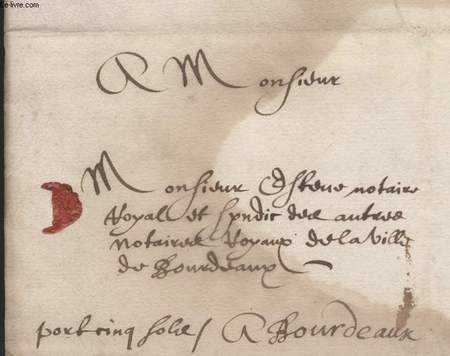 le-livre.com
A Monsieur
Monsieur Esteve notaire
Royal et sindic des autres
Notaires Royaux de la Ville
de Bourdeaux
port cinq solz A Bourdeaux